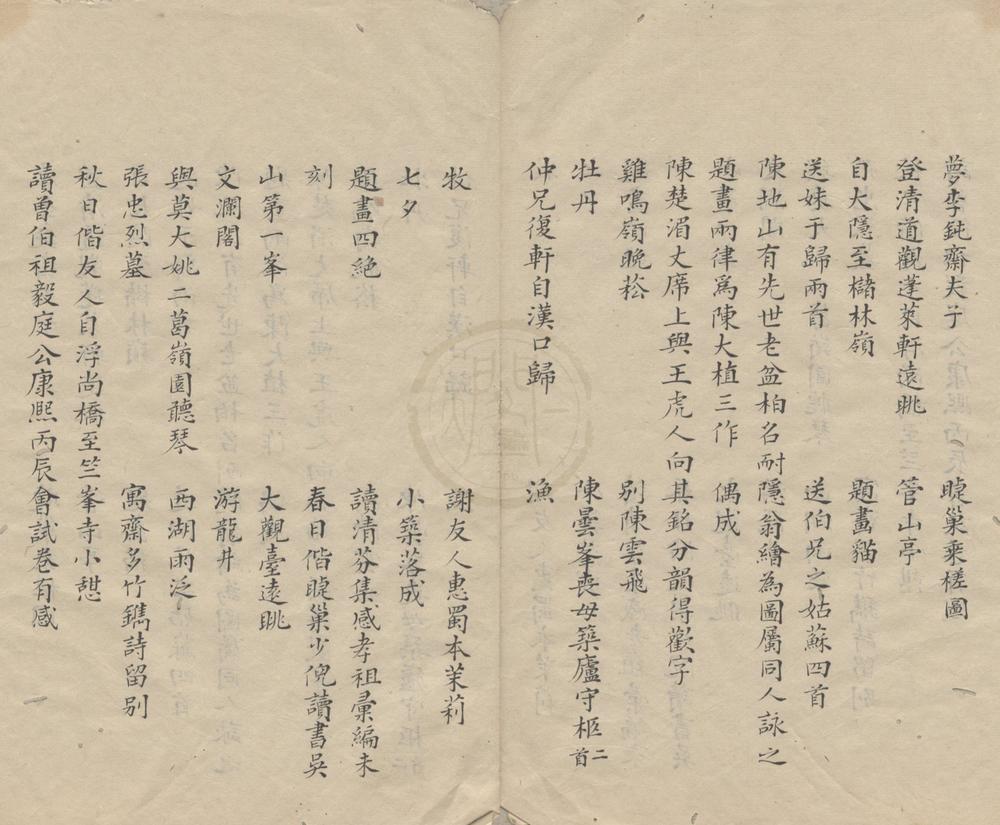 夢李鈍齋夫子　睫巢乘槎圖
登清道觀蓬萊軒遠眺　管山亭
自大隱至櫧林嶺　題畫貓
送妹于歸兩首　送伯兄之姑蘇四首
陳地山有先世老盆柏名耐隱翁繪為圖屬同人詠之
題畫兩律爲陳大植三作　偶成
陳楚湄丈席上與王虎人向其銘分韻得歡字
雞鳴嶺晚菘　別陳雲飛
牡丹　陳曇峯喪母築廬守柩二首
仲兄復軒自漢口歸　漁
牧　謝友人惠蜀本茉莉
七夕　小築落成
題畫四絶　讀清芬集感孝祖彙編未
刻　春日偕睫巢少倪讀書吳
山第一峯　大觀臺遠眺
文瀾閣　游龍井
與莫大姚二葛嶺園聽琴　西湖雨泛
張忠烈墓　寓齋多竹鐫詩留别
秋日偕友人自浮尚橋至竺峯寺小憇
讀曾伯祖毅庭公康熙丙辰會試卷有感